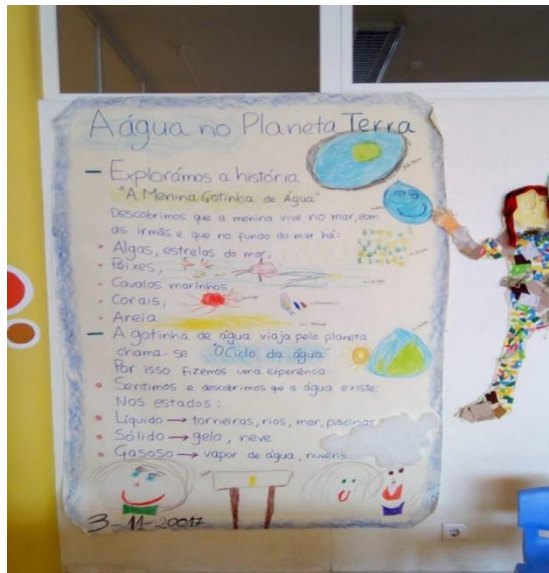 A água no Planeta Terra
— Explorámos a história
"A Menina Gotinha de Água"
Descobrimos que a menina vive no mar, com
as irmãs e que no fundo do mar há:
• Algas, estrelas do mar,
• Peixes,
• Cavalos marinhos,
• Corais,
• Areia
— A gotinha de água viaja pelo planeta
chama-se "O Ciclo da água"
Por isso fizemos uma experiência
• Sentimos e descobrimos que a água existe:
Nos estados:
• Líquido → torneiras, rios, mar, piscinas
• Sólido → gelo, neve
• Gasoso → vapor de água, nuvens
3-11-20017